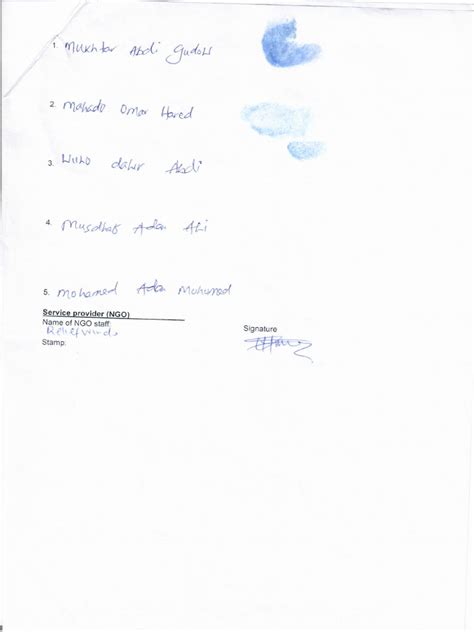 1. Mukhtar Abdi Gudole
2. Mahade Omar Hared
3. Wiilo dahir Abdi
4. Musdhaf Adan Ali
5. Mohamed Adan Muhumed
Service provider (NGO)
Name of NGO staff:
Signature
Stamp: